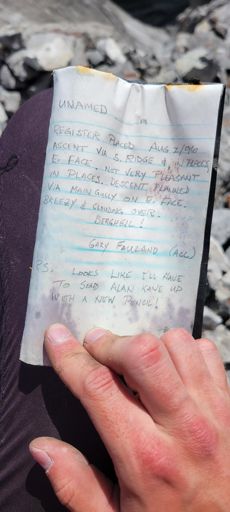 UNAMED
REGISTER PLACED AUG 2/96
ASCENT VIA S. RIDGE & IN PLACES,
E FACE. NOT VERY PLEASANT
IN PLACES. DESCENT PLANNED
VIA MAIN GULLY ON E. FACE.
BREEZY & CLOUDING OVER.
BERGHEIL!
GARY FAULAND (ACC)
PS. LOOKS LIKE I'LL HAVE
TO SEND ALAN KANE UP
WITH A NEW PENCIL!